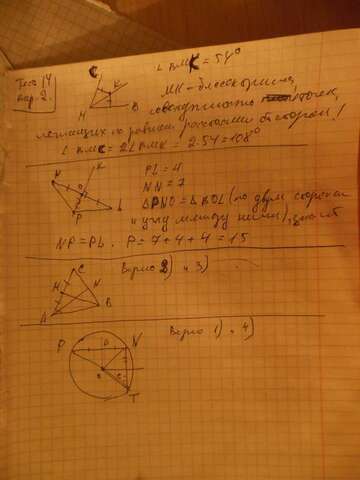 Тест 14
вар. 2.
C
K
M
B
∠ BMK = 54°
MK - биссектриса,
совокупность точек,
лежащих на равном расстоянии от сторон!
∠ BMC = 2∠BMK = 2·54 = 108°
K
N
O
P
L
PL = 4
NN = 7
ΔPNO = ΔROL (по двум сторонам
и углу между ними), значит
NP = PL. P = 7 + 4 + 4 = 15
C
M
N
A
B
Верно 2) и 3)
P
D
N
T
Верно 1) и 4)